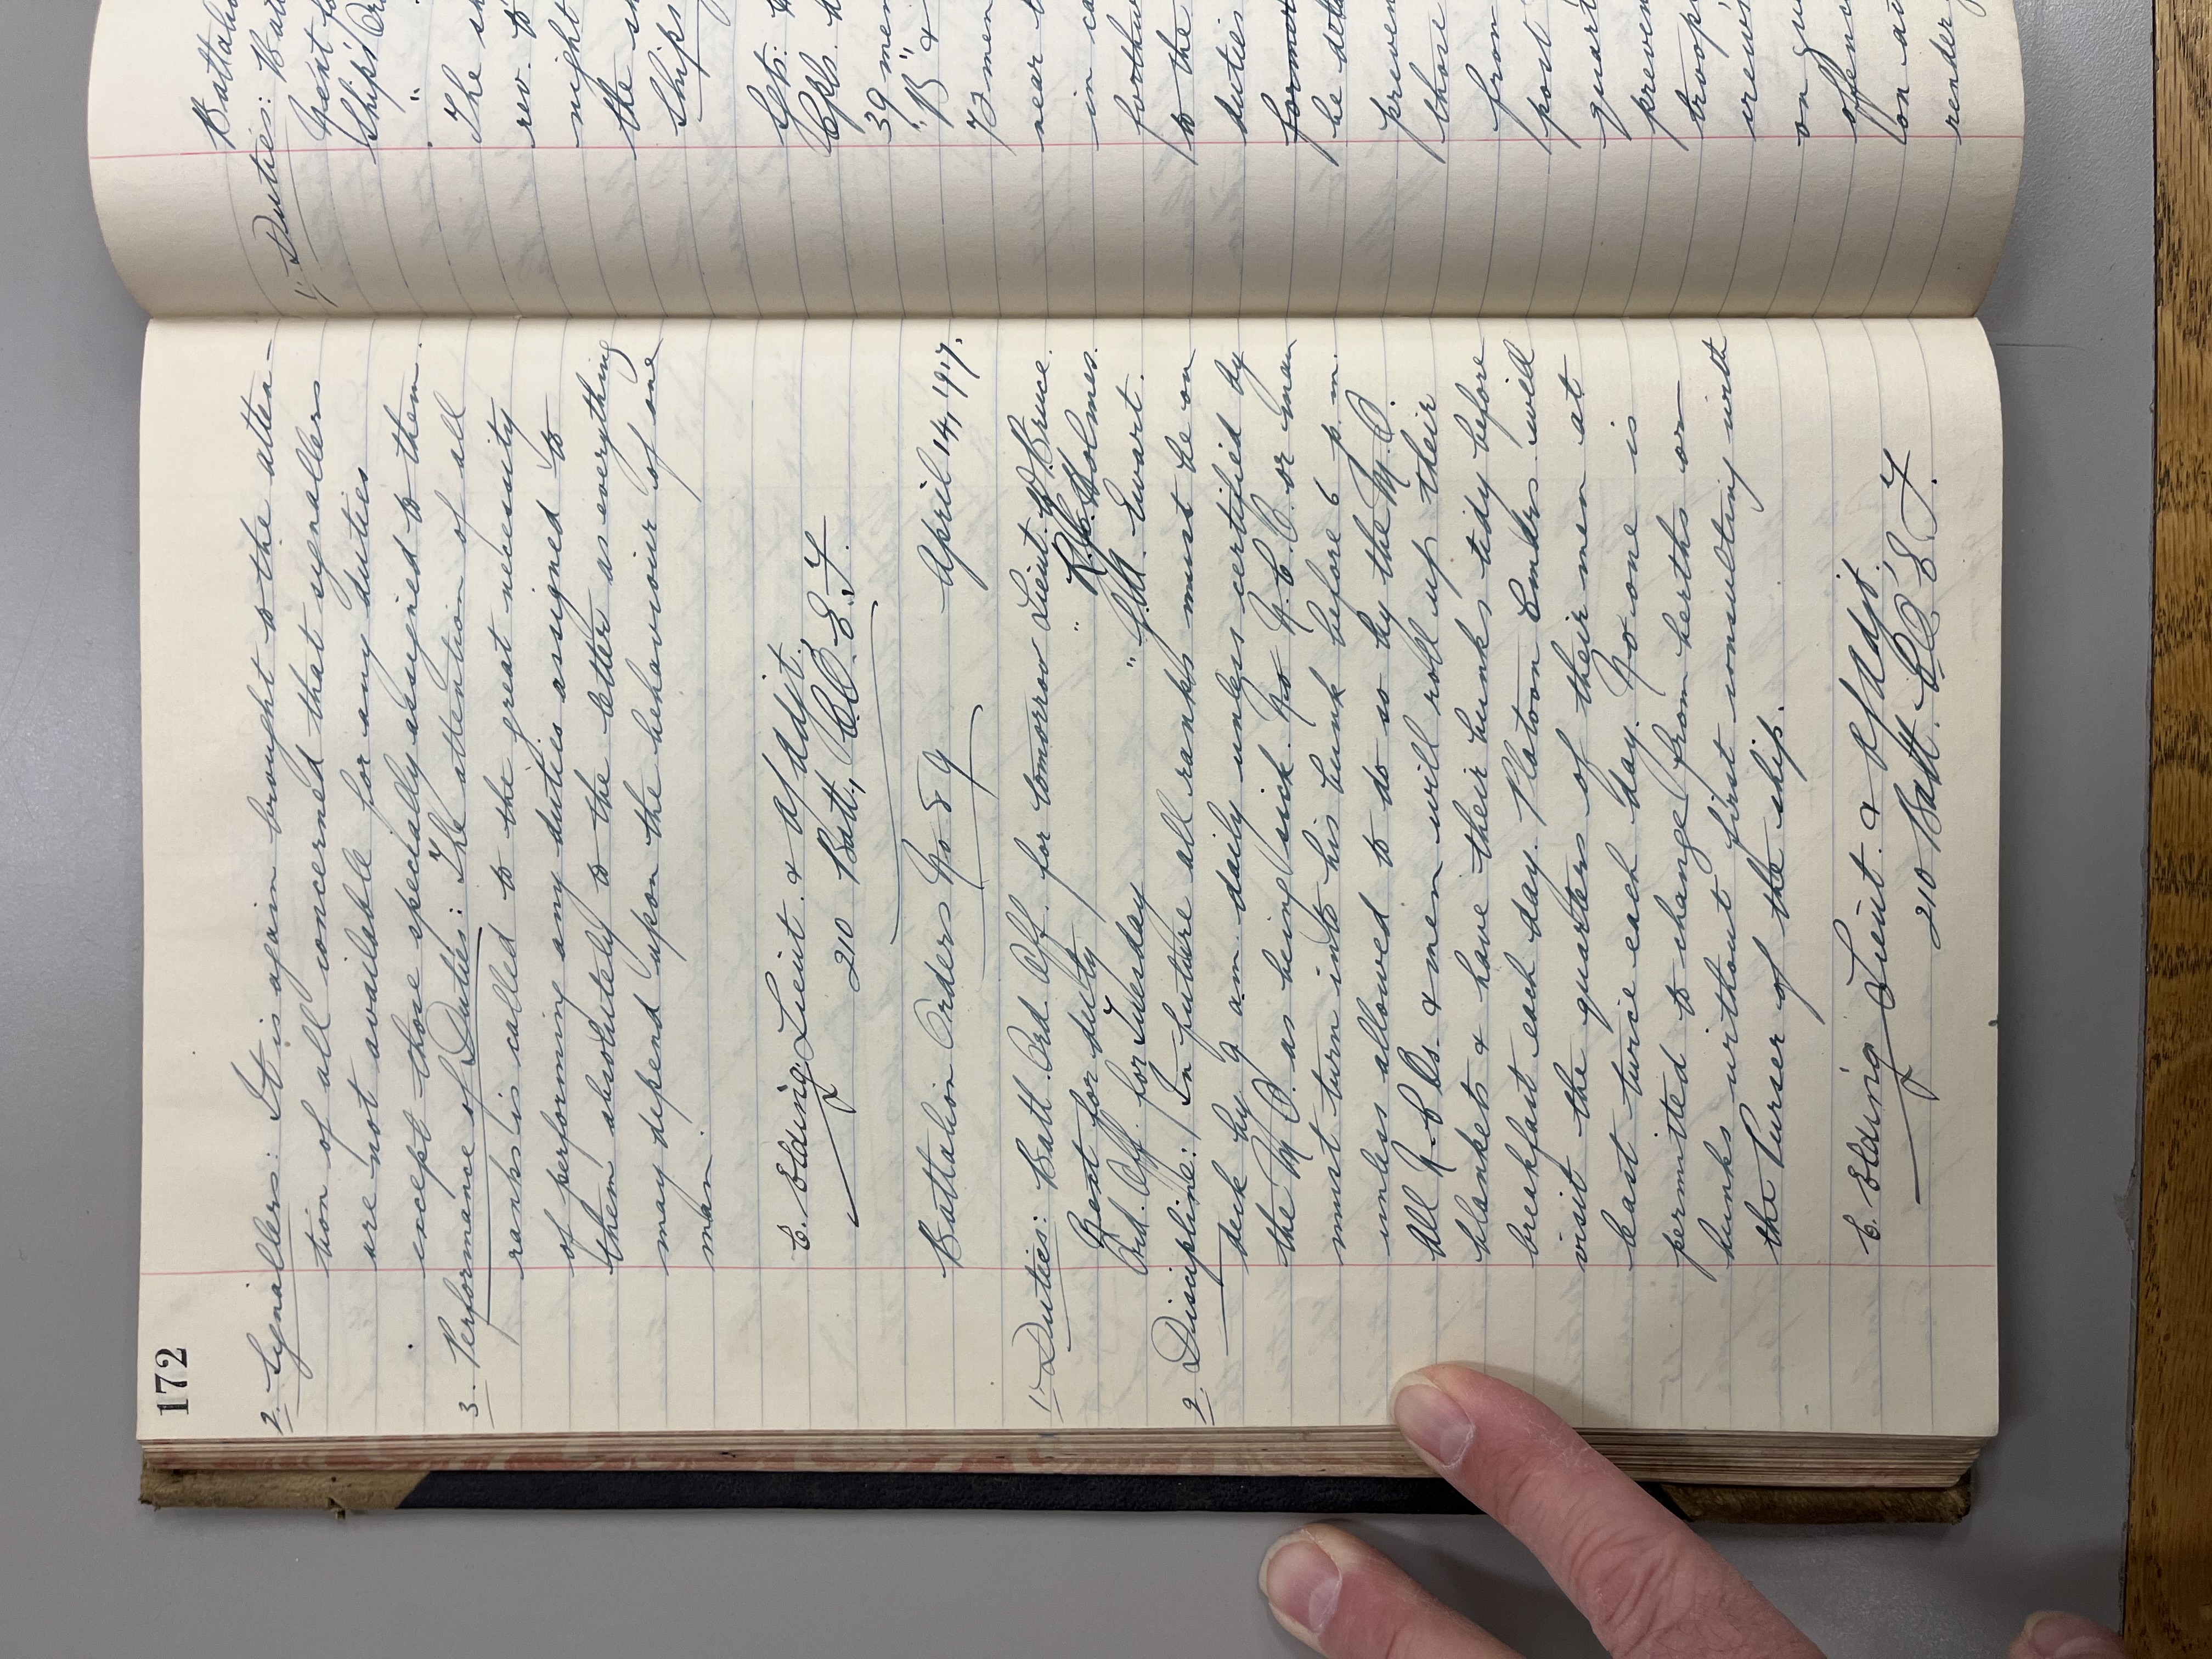 172
2. Signallers: It is again brought to the atten-
tion of all concerned that signallers
are not available for any duties
except those specially assigned to them.
3. Performance of Duties: The attention of all
ranks is called to the great necessity
of performing any duties assigned to
them absolutely to the letter as everything
may depend upon the behaviour of one
man.
C. Elding Lieut. & a/Adjt.
210 Batt, C.E.F.
Battalion Orders No 89 April 14, 1917.
1. Duties: Batt. Ord. Off. for tomorrow Lieut. W. Bruce.
Next for duty " R. G. Holmes.
Ord. Off. for Tuesday " J.A. Ewart.
2. Discipline: In future all ranks must be on
deck by 9 a.m. daily unless certified by
the M.O. as being sick. No N.C.O. or man
must turn into his bunk before 6 p.m.
unless allowed to do so by the M.O.
All N.C.Os. & men will roll up their
blankets & have their bunks tidy before
breakfast each day. Platoon Comdrs. will
visit the quarters of their men at
least twice each day. No one is
permitted to change from berths or
bunks without first consulting with
the Purser of the ship.
C. Elding Lieut. & a/Adjt.
210 Batt. C.E.F.
Battalio
1. Duties: Bat
Next fo
Ship's Or
"
The s
rev. to
night
the s
ships
Sgts.
Cpls.
39 men
"B" &
72 men
near
in ca
further
to the
duties
be deta
preven
those
from
post
quart
preven
troops
on gu
offence
on a
render